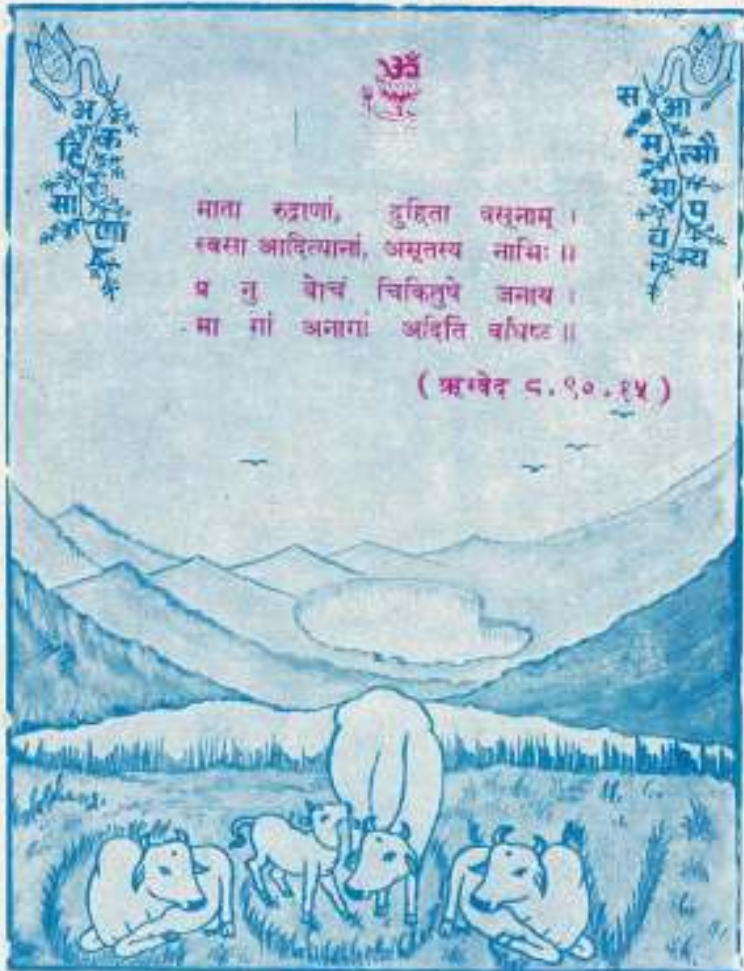 ॐ
अहिंसा
करुणा
समभाव
आत्मौपम्य
माता रुद्राणां, दुहिता वसूनाम् ।
स्वसा आदित्यानां, अमृतस्य नाभिः ॥
प्र नु वोचं चिकितुषे जनाय ।
मा गां अनागां अदितिं वधिष्ट ॥
( ऋग्वेद ८.९०.१५ )